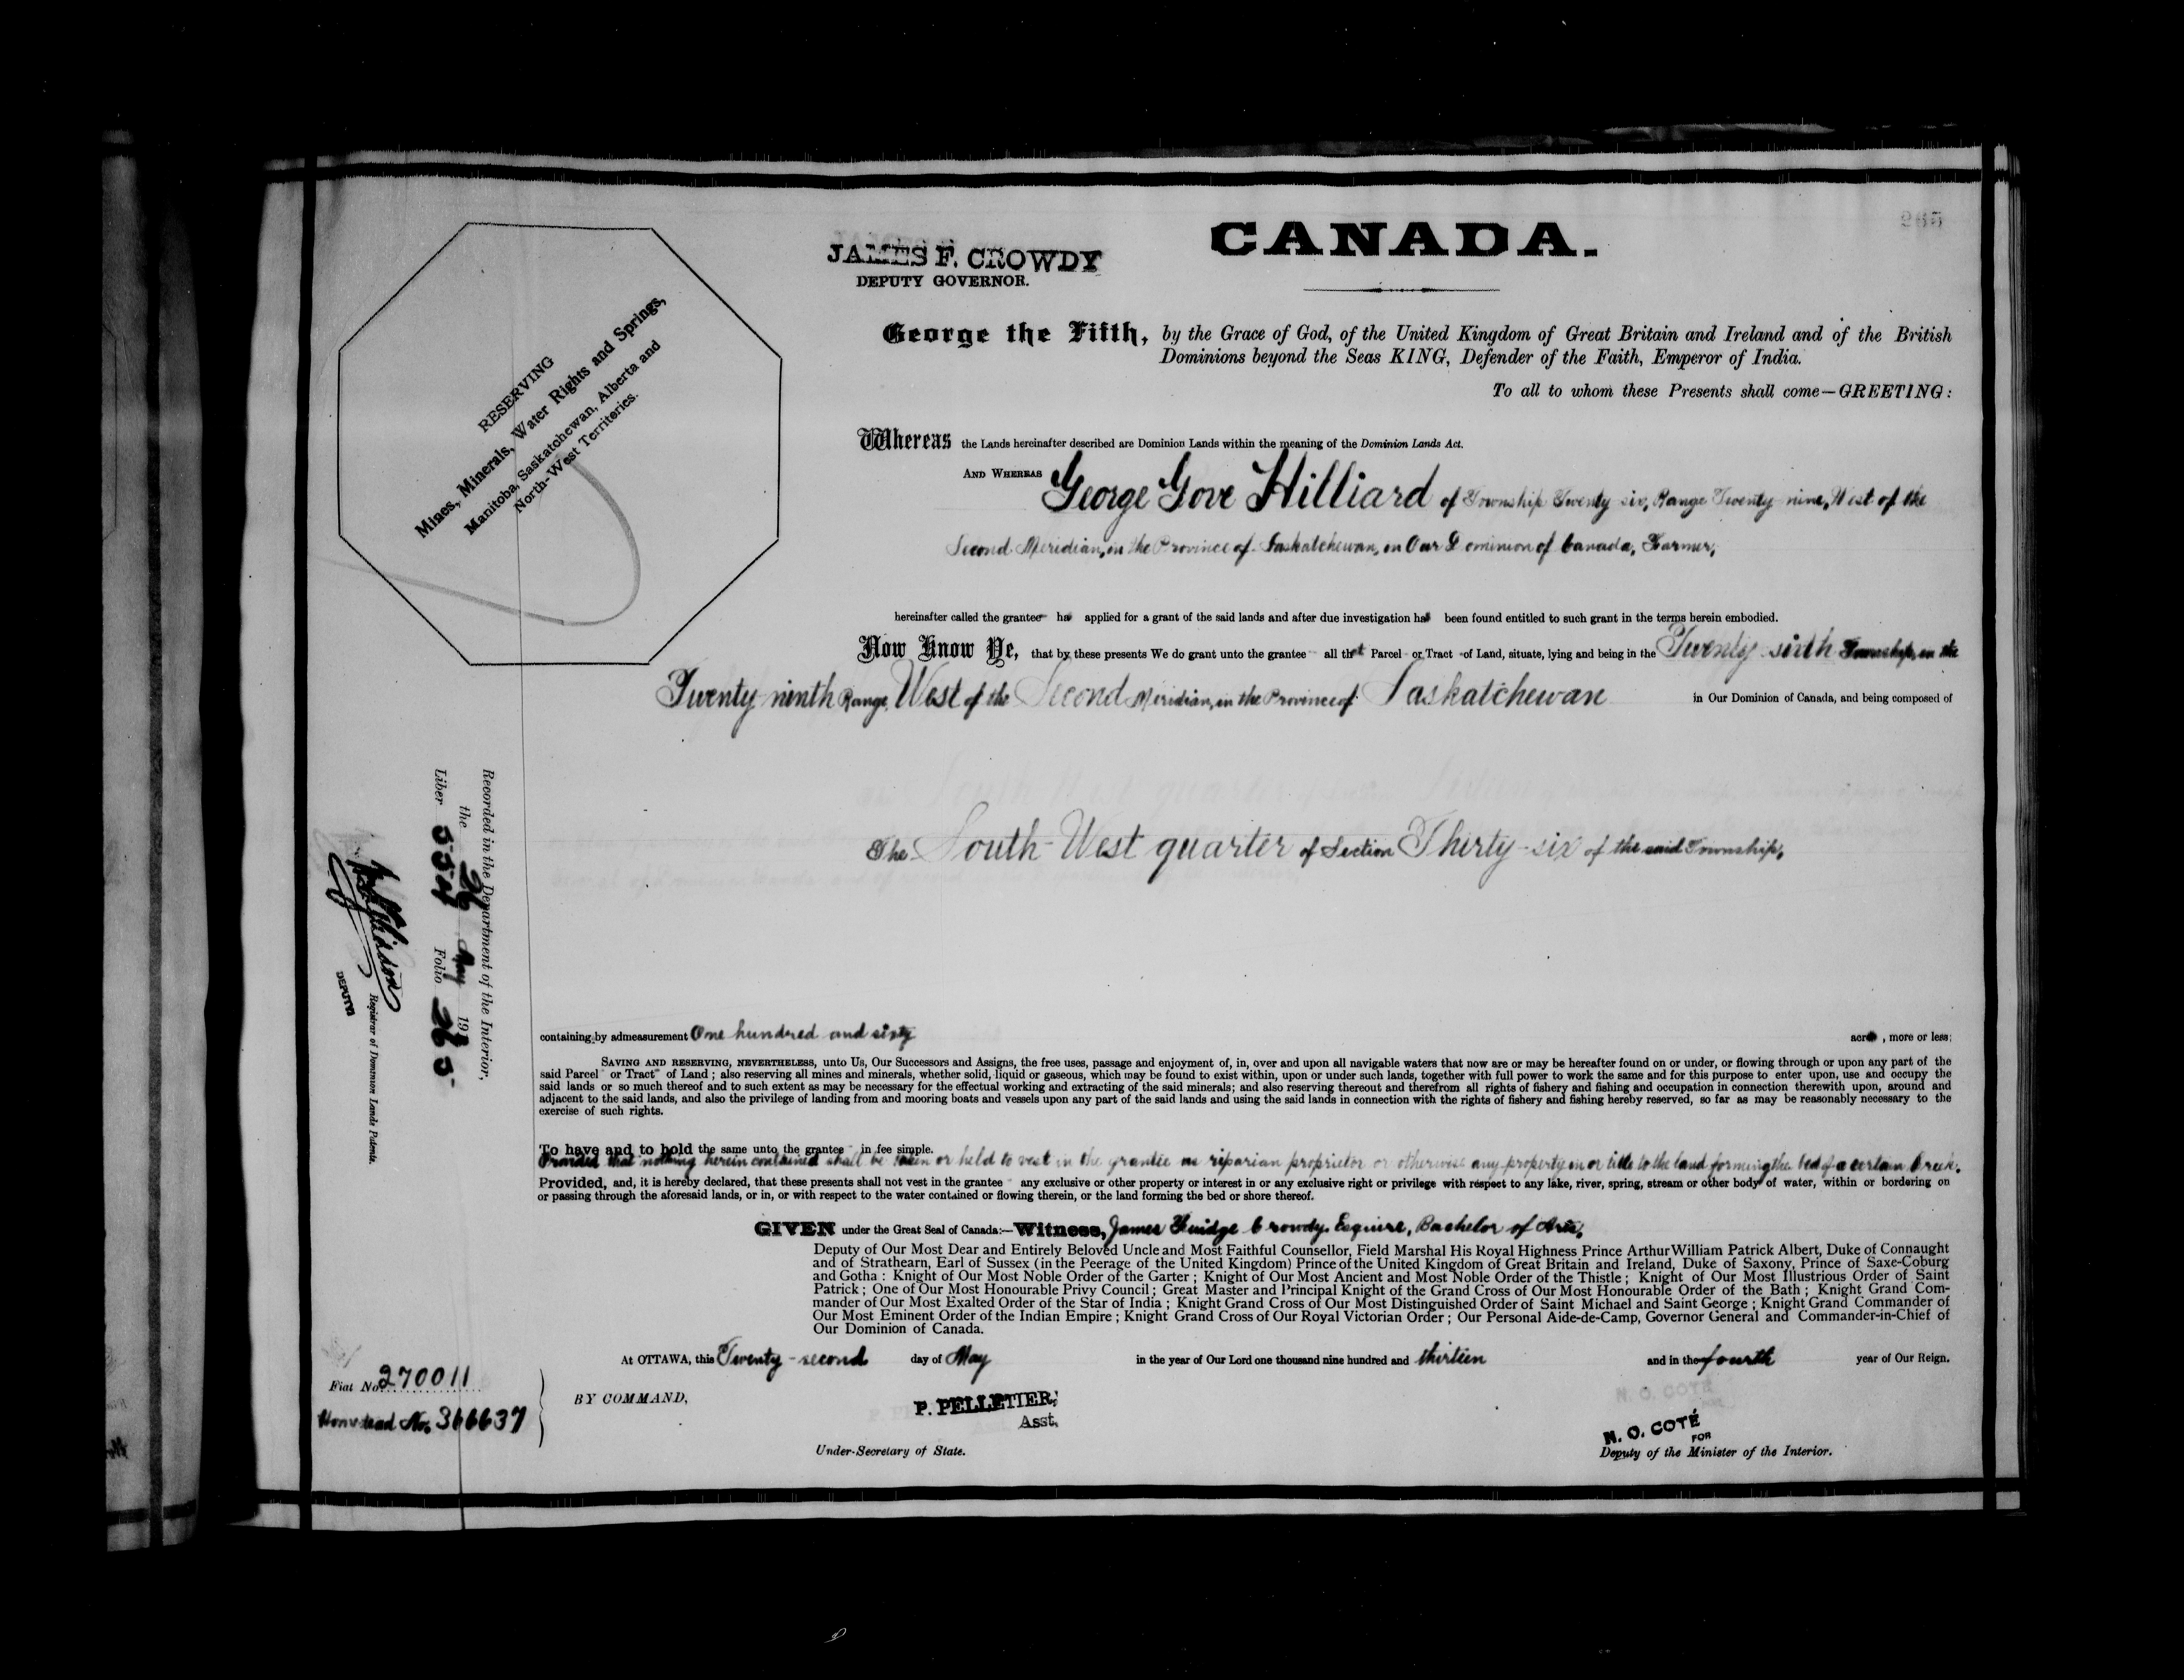 CANADA.
JAMES F. CROWDY
DEPUTY GOVERNOR.
RESERVING
Mines, Minerals, Water Rights and Springs,
Manitoba, Saskatchewan, Alberta and
North-West Territories.
George the Fifth, by the Grace of God, of the United Kingdom of Great Britain and Ireland and of the British
Dominions beyond the Seas KING, Defender of the Faith, Emperor of India.
To all to whom these Presents shall come—GREETING:
Whereas the Lands hereinafter described are Dominion Lands within the meaning of the Dominion Lands Act.
AND WHEREAS George Gove Hilliard of Township Twenty-six, Range Twenty-nine, West of the
Second Meridian, in the Province of Saskatchewan, in Our Dominion of Canada, Farmer,
hereinafter called the grantee has applied for a grant of the said lands and after due investigation has been found entitled to such grant in the terms herein embodied.
Now Know Ye, that by these presents We do grant unto the grantee all that Parcel or Tract of Land, situate, lying and being in the Twenty-sixth Township, in the
Twenty-ninth Range, West of the Second Meridian, in the Province of Saskatchewan in Our Dominion of Canada, and being composed of
The South-West quarter of Section Thirty-six of the said Township,
containing by admeasurement One hundred and sixty acres, more or less;
SAVING AND RESERVING, NEVERTHELESS, unto Us, Our Successors and Assigns, the free uses, passage and enjoyment of, in, over and upon all navigable waters that now are or may be hereafter found on or under, or flowing through or upon any part of the
said Parcel or Tract of Land; also reserving all mines and minerals, whether solid, liquid or gaseous, which may be found to exist within, upon or under such lands, together with full power to work the same and for this purpose to enter upon, use and occupy the
said lands or so much thereof and to such extent as may be necessary for the effectual working and extracting of the said minerals; and also reserving thereout and therefrom all rights of fishery and fishing and occupation in connection therewith upon, around and
adjacent to the said lands, and also the privilege of landing from and mooring boats and vessels upon any part of the said lands and using the said lands in connection with the rights of fishery and fishing hereby reserved, so far as may be reasonably necessary to the
exercise of such rights.
To have and to hold the same unto the grantee in fee simple.
Provided that nothing herein contained shall be taken or held to vest in the grantee as riparian proprietor or otherwise any property in or title to the land forming the bed of a certain Creek.
Provided, and, it is hereby declared, that these presents shall not vest in the grantee any exclusive or other property or interest in or any exclusive right or privilege with respect to any lake, river, spring, stream or other body of water, within or bordering on
or passing through the aforesaid lands, or in, or with respect to the water contained or flowing therein, or the land forming the bed or shore thereof.
GIVEN under the Great Seal of Canada:—Witness, James Fuidge Crowdy, Esquire, Bachelor of Arts,
Deputy of Our Most Dear and Entirely Beloved Uncle and Most Faithful Counsellor, Field Marshal His Royal Highness Prince Arthur William Patrick Albert, Duke of Connaught
and of Strathearn, Earl of Sussex (in the Peerage of the United Kingdom) Prince of the United Kingdom of Great Britain and Ireland, Duke of Saxony, Prince of Saxe-Coburg
and Gotha: Knight of Our Most Noble Order of the Garter; Knight of Our Most Ancient and Most Noble Order of the Thistle; Knight of Our Most Illustrious Order of Saint
Patrick; One of Our Most Honourable Privy Council; Great Master and Principal Knight of the Grand Cross of Our Most Honourable Order of the Bath; Knight Grand Com-
mander of Our Most Exalted Order of the Star of India; Knight Grand Cross of Our Most Distinguished Order of Saint Michael and Saint George; Knight Grand Commander of
Our Most Eminent Order of the Indian Empire; Knight Grand Cross of Our Royal Victorian Order; Our Personal Aide-de-Camp, Governor General and Commander-in-Chief of
Our Dominion of Canada.
At OTTAWA, this Twenty-second day of May in the year of Our Lord one thousand nine hundred and thirteen and in the fourth year of Our Reign.
BY COMMAND,
P. PELLETIER,
Asst.
Under-Secretary of State.
N. O. COTÉ
FOR
Deputy of the Minister of the Interior.
Fiat No. 270011
Homestead No. 366637
Recorded in the Department of the Interior,
the 26 May 1913
Liber 554 Folio 265
Registrar of Dominion Lands Patents.
DEPUTY